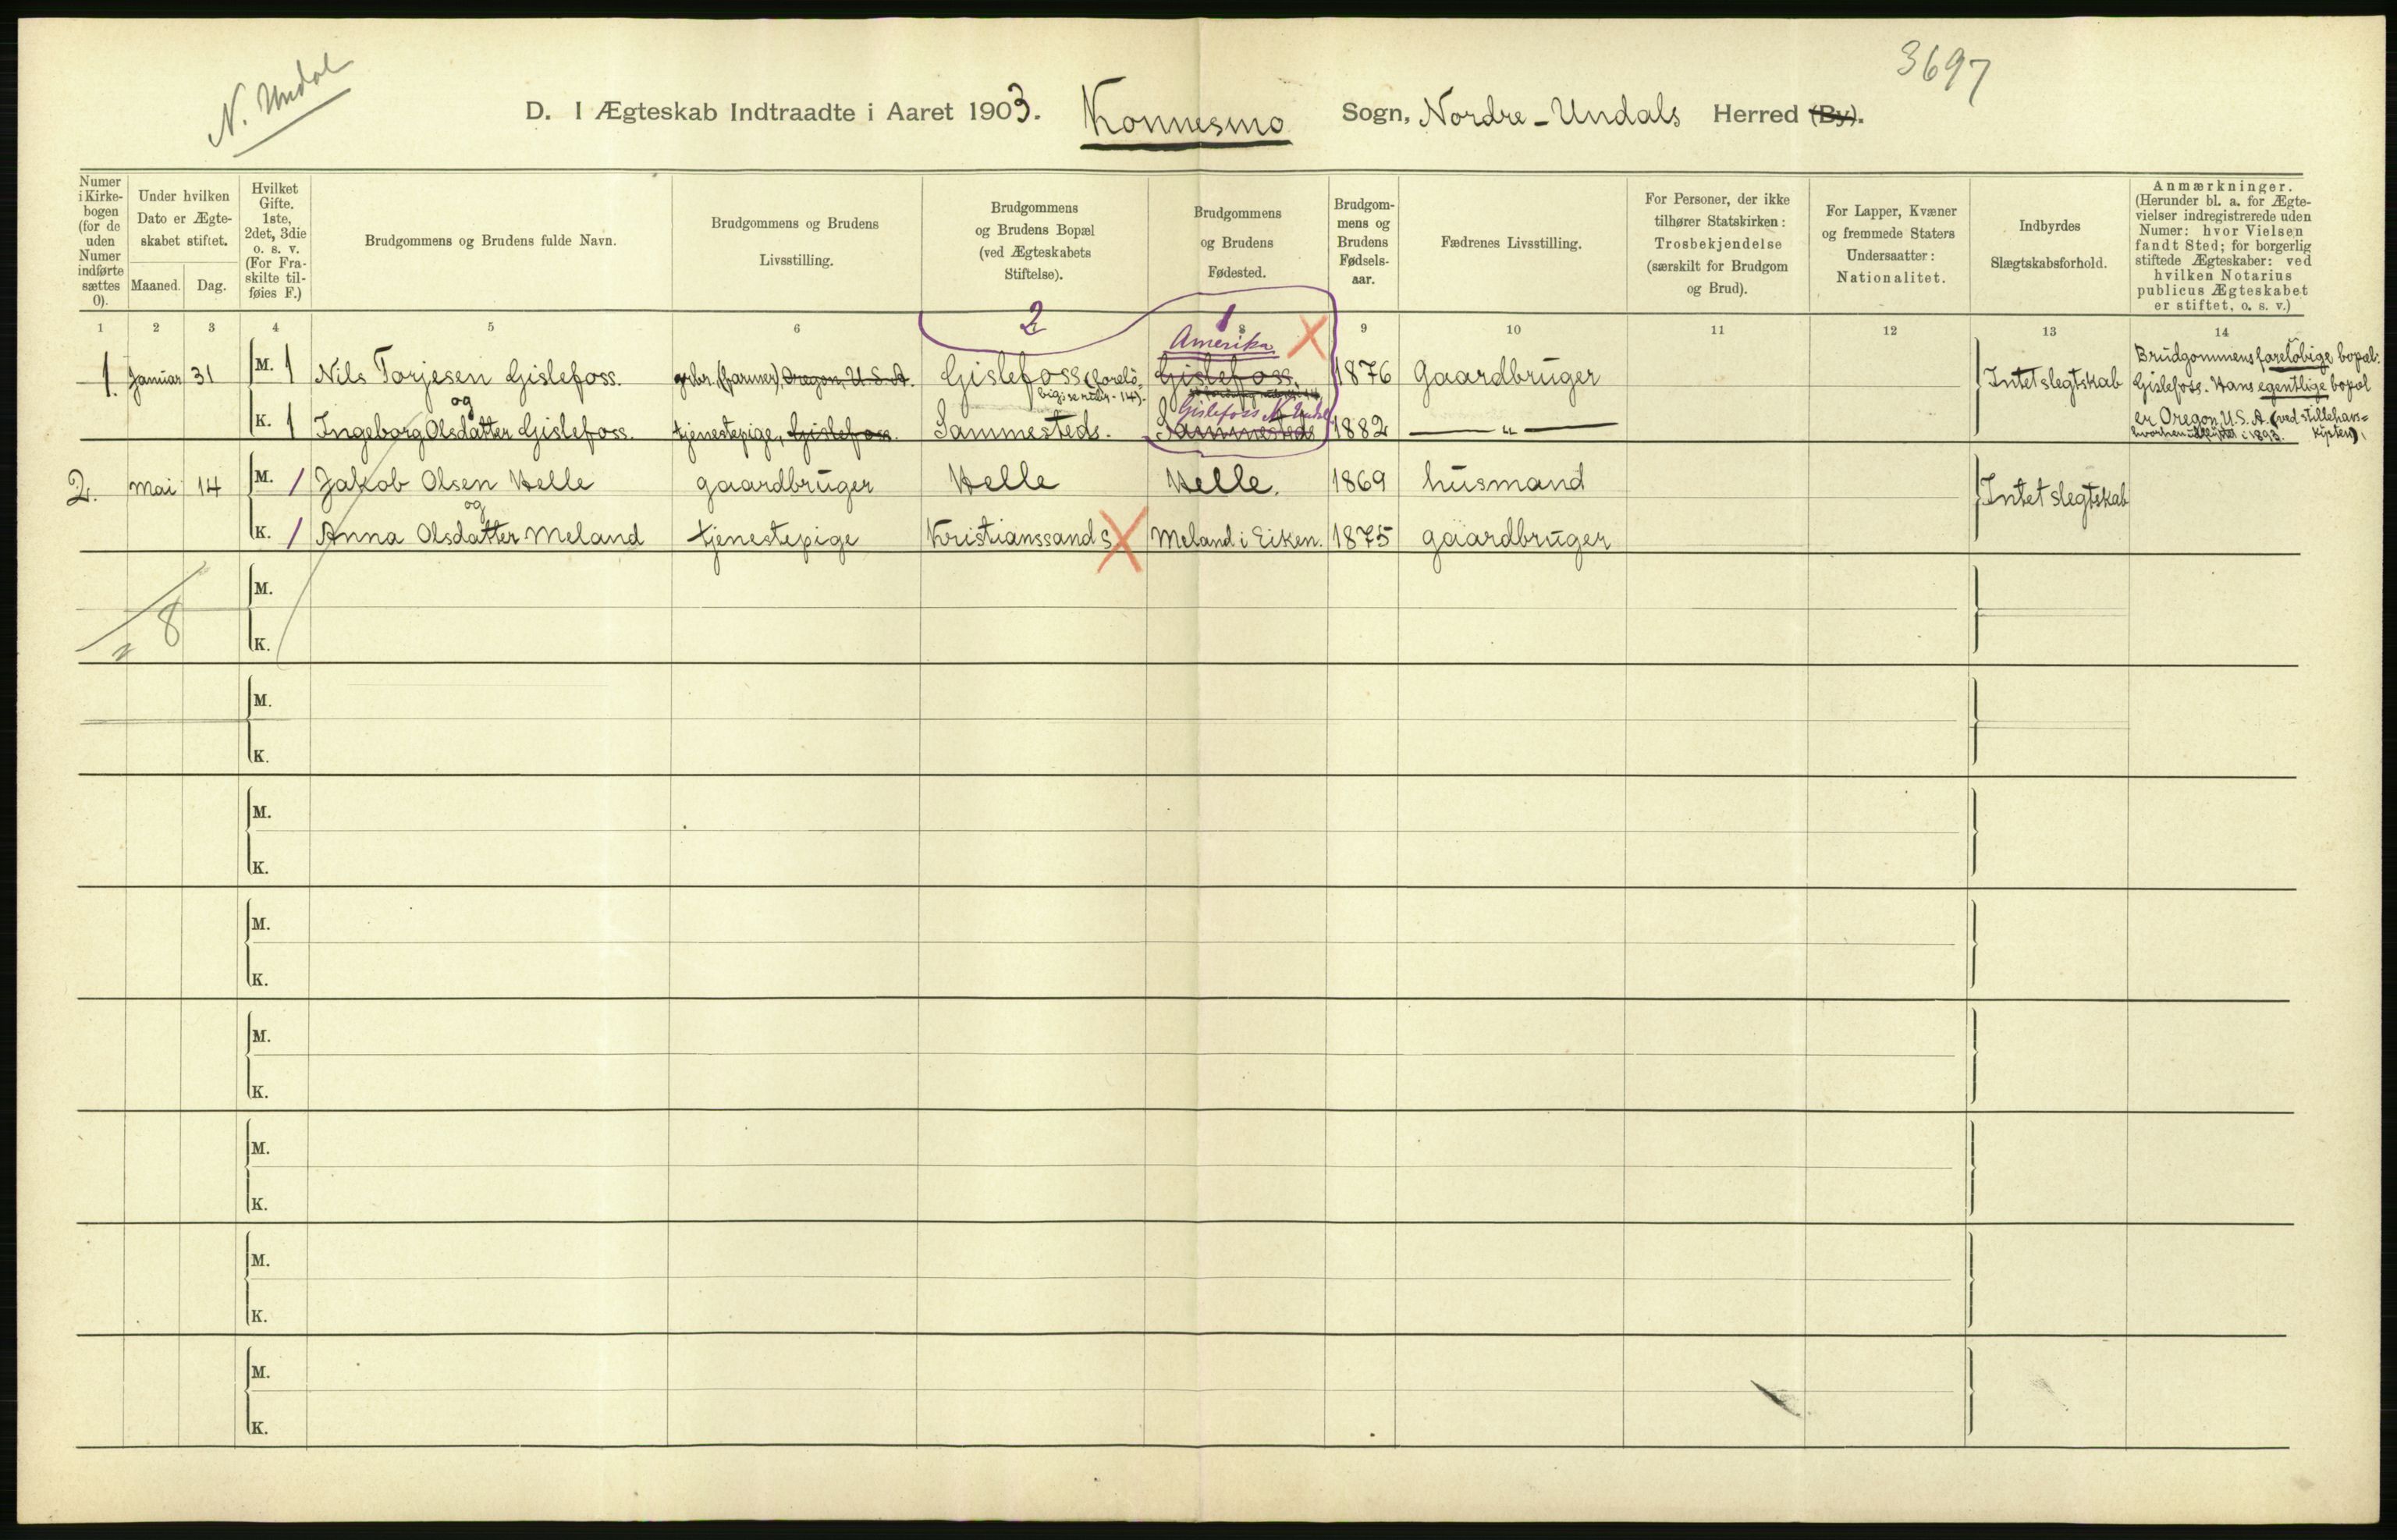 N. Undal
3697
D. I Ægteskab Indtraadte i Aaret 1903. Konnesmo Sogn, Nordre-Undals Herred (By).
Numer i Kirkebogen (for de uden Numer indførte sættes 0).
Under hvilken Dato er Ægteskabet stiftet.
Maaned. Dag.
Hvilket Gifte. 1ste, 2det, 3die o. s. v. (For Fraskilte tilføies F.)
Brudgommens og Brudens fulde Navn.
Brudgommens og Brudens Livsstilling.
Brudgommens og Brudens Bopæl (ved Ægteskabets Stiftelse).
Brudgommens og Brudens Fødested.
Brudgommens og Brudens Fødselsaar.
Fædrenes Livsstilling.
For Personer, der ikke tilhører Statskirken: Trosbekjendelse (særskilt for Brudgom og Brud).
For Lapper, Kvæner og fremmede Staters Undersaatter: Nationalitet.
Indbyrdes Slægtskabsforhold.
Anmærkninger. (Herunder bl. a. for Ægtevielser indregistrerede uden Numer: hvor Vielsen fandt Sted; for borgerlig stiftede Ægteskaber: ved hvilken Notarius publicus Ægteskabet er stiftet, o. s. v.)
2 1
1 2 3 4 5 6 8 9 10 11 12 13 14
Amerika
1. Januar 31 M. 1 Nils Torjesen Gislefoss. grbr. (farmer), Oregon, U.S.A. Gislefoss (forelö- Gislefoss, 1876 Gaardbruger Intet slegtskab
og
Gislefoss N. Undal
K. 1 Ingeborg Olsdatter Gislefoss. tjenestepige, Gislefoss. Sammesteds. Sammesteds 1882 — " —
Brudgommens foreløbige bopæl:
Gislefoss. Hans egentlige bopæl
er Oregon, U.S.A. (ved stillehavs-
kysten),
hvorhen udflyttet i 1893.
2. Mai 14 M. 1 Jakob Olsen Helle gaardbruger Helle Helle. 1869 husmand Intet slegtskab
og
K. 1 Anna Olsdatter Meland tjenestepige Kristianssand S Meland i Eiken. 1875 gaardbruger
M.
8
K.
M.
K.
M.
K.
M.
K.
M.
K.
M.
K.
M.
K.
M.
K.